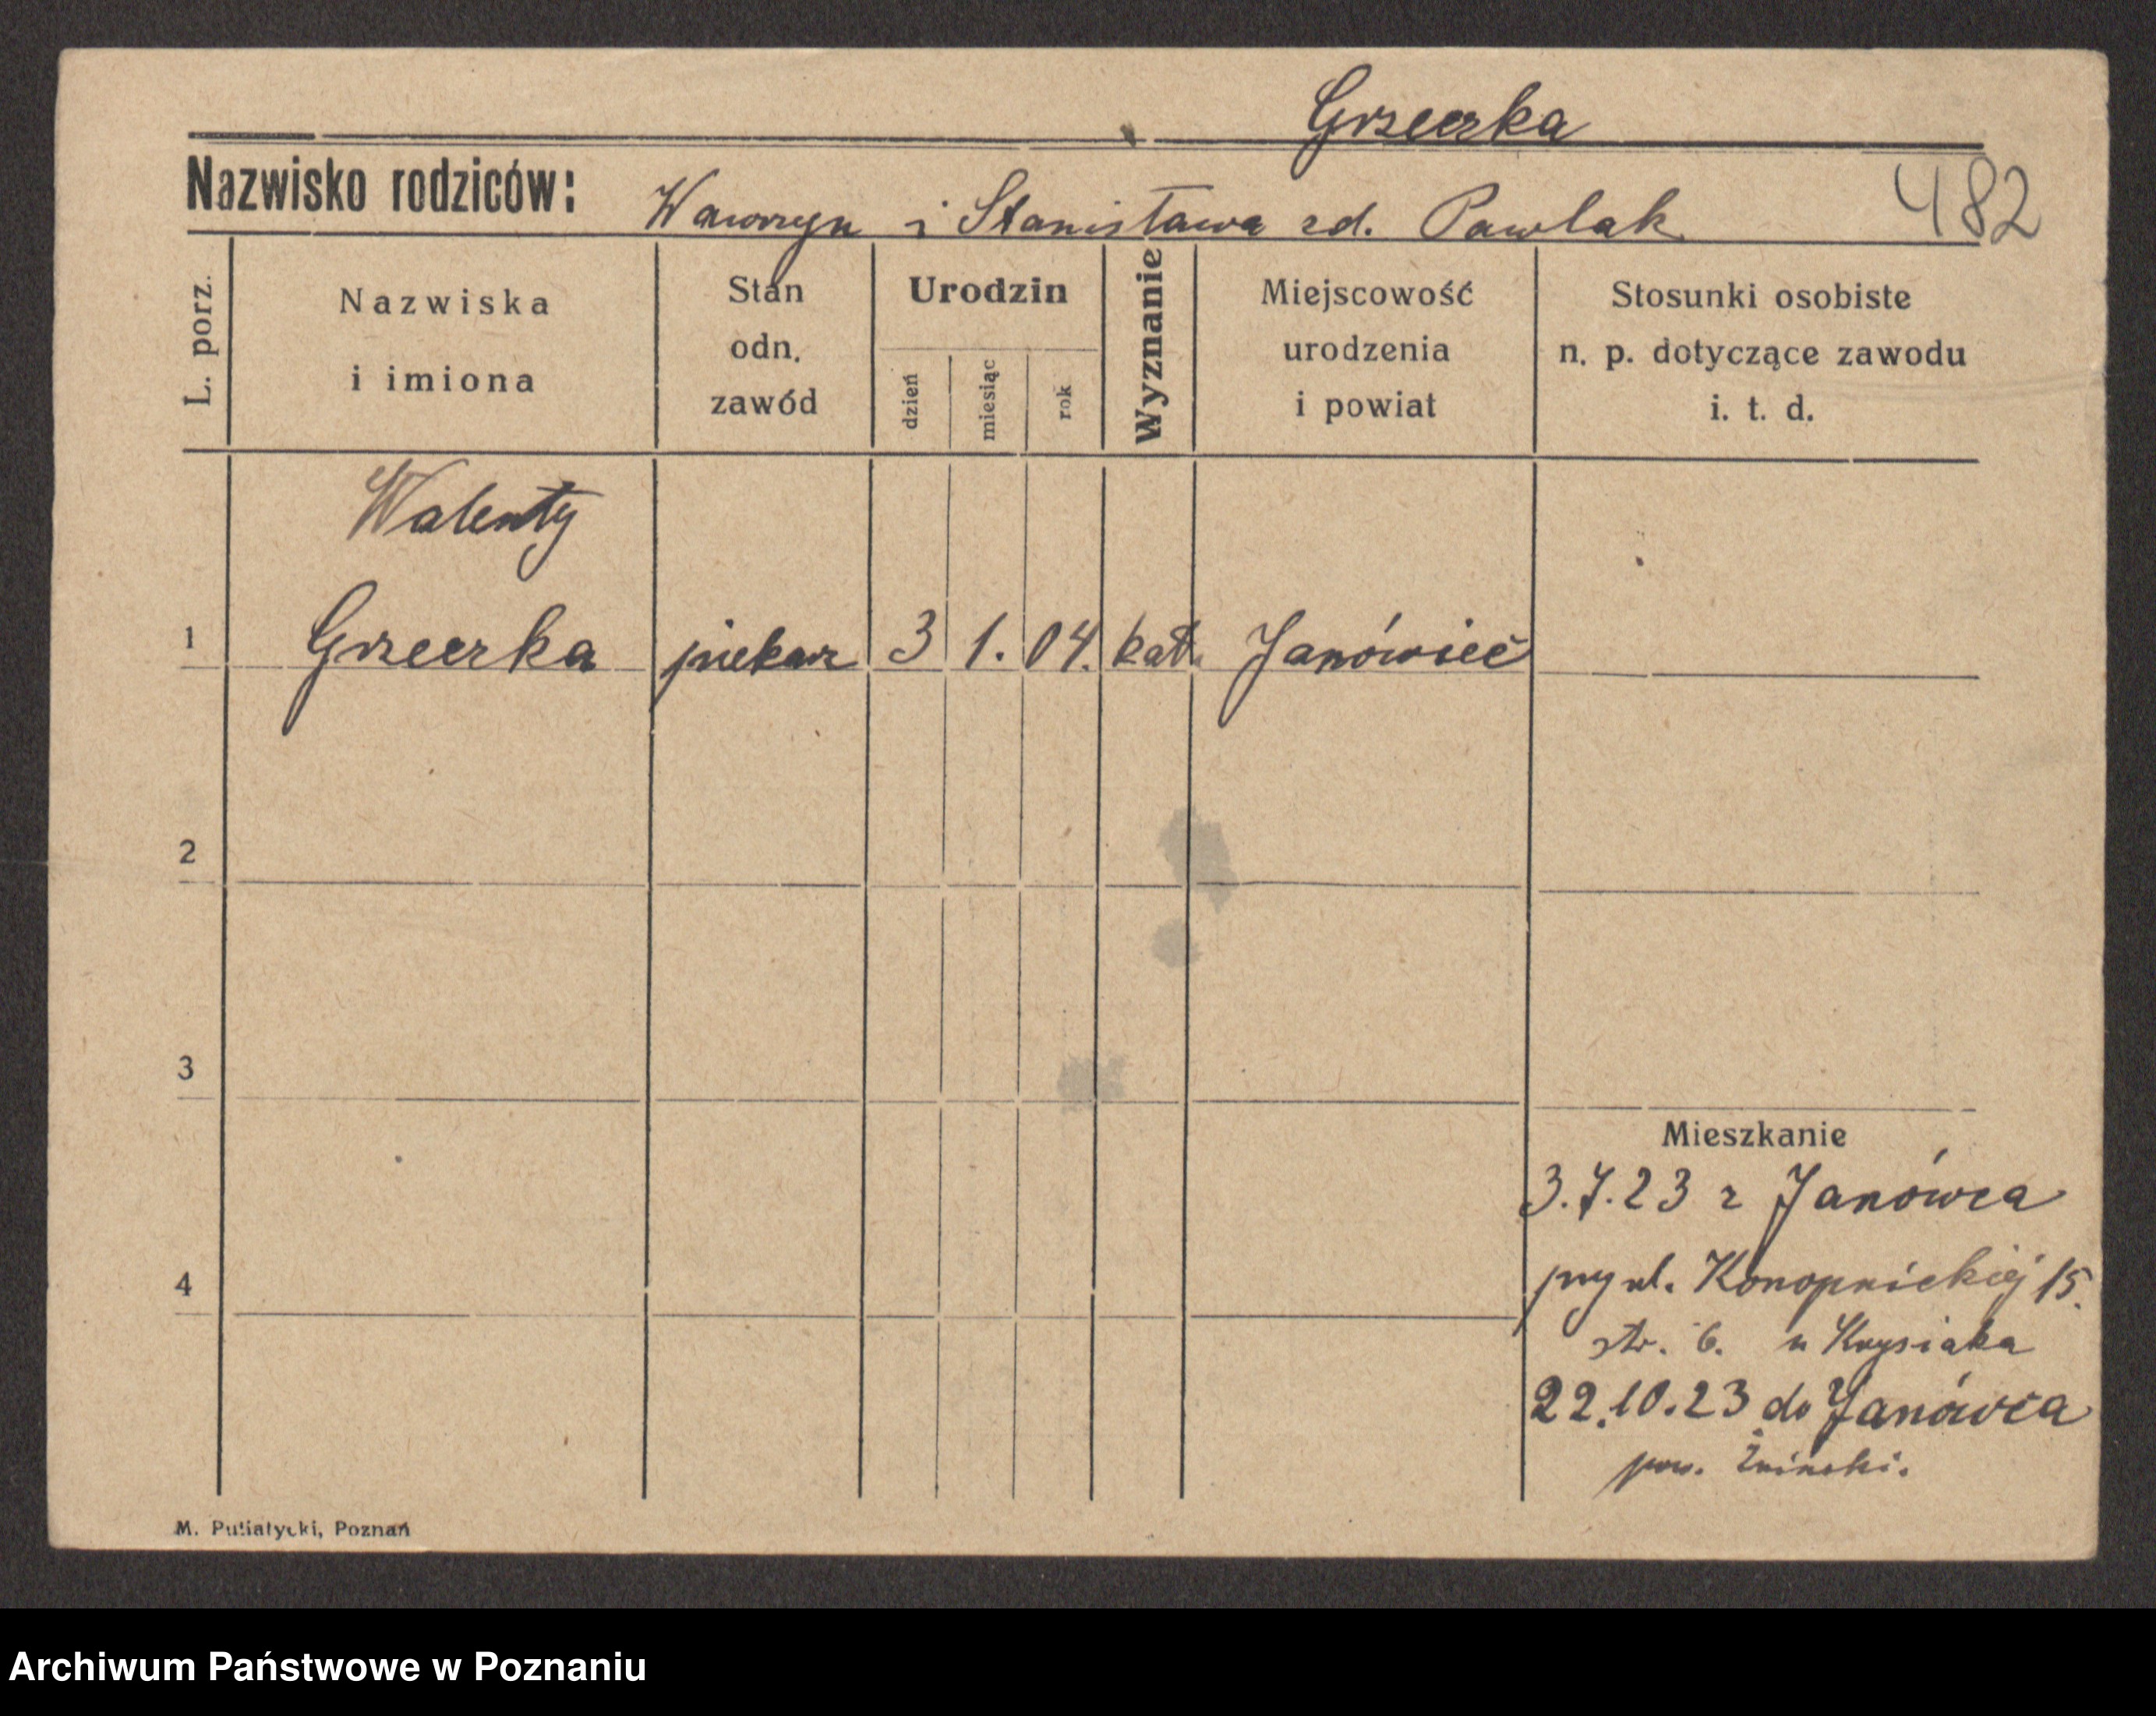 Grzeczka
Nazwisko rodziców: Wawrzyn i Stanisława zd. Pawlak 482
L. porz.
Nazwiska i imiona
Stan odn. zawód
Urodzin
dzień
miesiąc
rok
Wyznanie
Miejscowość urodzenia i powiat
Stosunki osobiste n. p. dotyczące zawodu i. t. d.
Walenty
1 Grzeczka piekarz 3 1. 04. kat. Janówiec
2
3
Mieszkanie
3.7.23 z Janówca
4
przy ul. Konopnickiej 15.
str. 6. u Krysiaka
22.10.23 do Janówca
pow. Żniński.
M. Putiatycki, Poznań
Archiwum Państwowe w Poznaniu